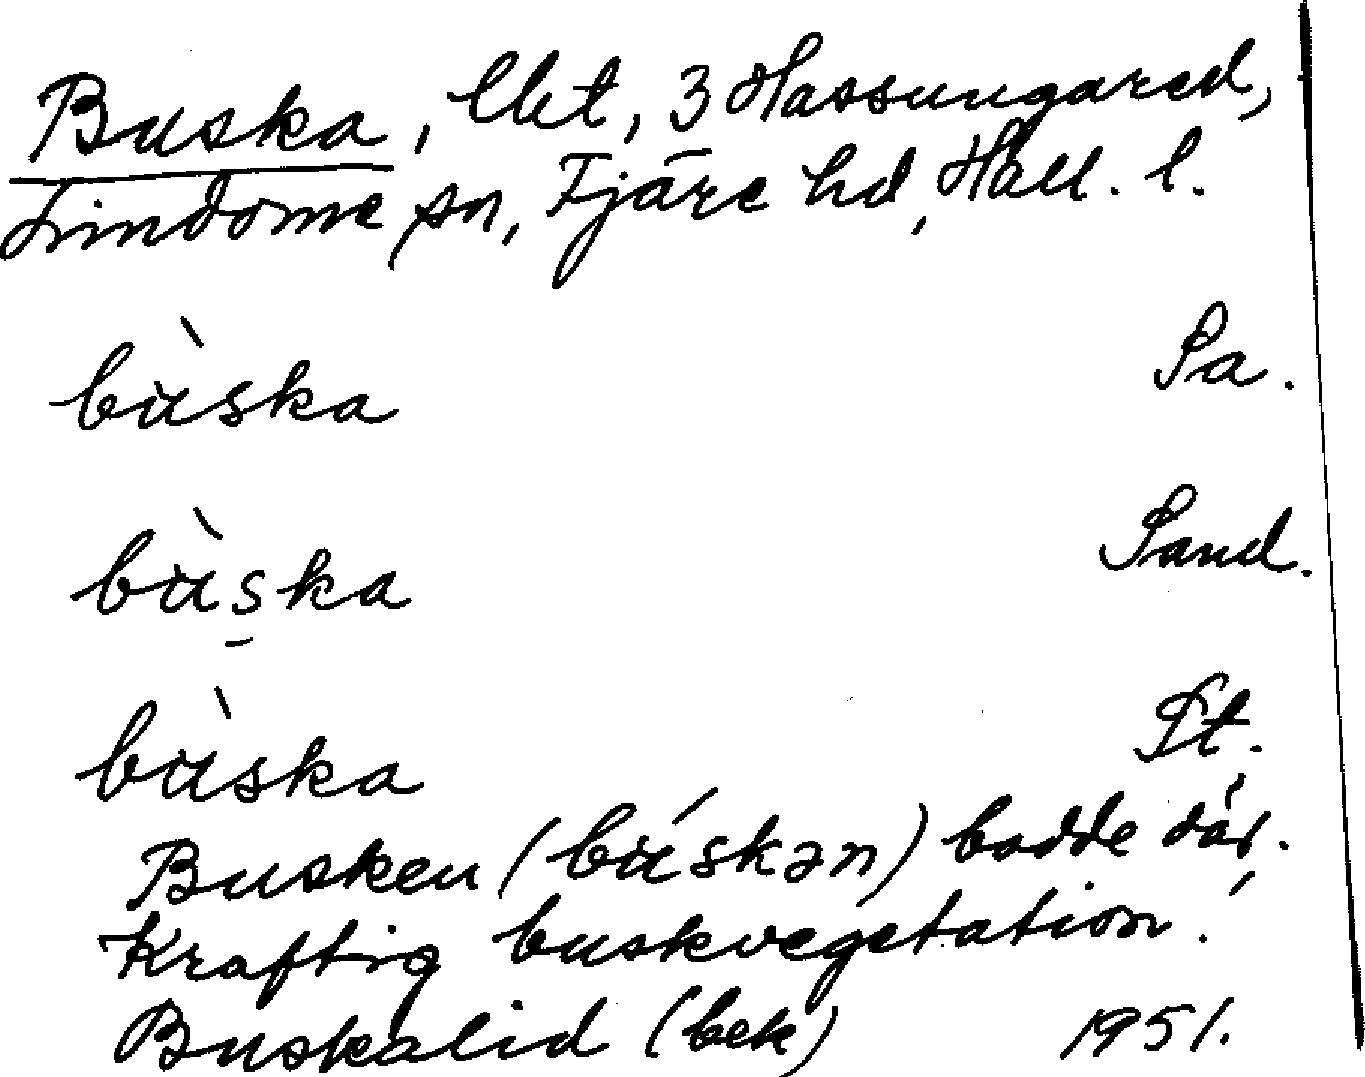 Buska, lht, 3 Hassungared,
Lindome sn, Fjäre hd, Hall. l.
bùska Pa.
bùska Sand.
bùska Pt.
Busken (búskən) bodde där.
Kraftig buskvegetation!
Buskalid (bek) 1951.